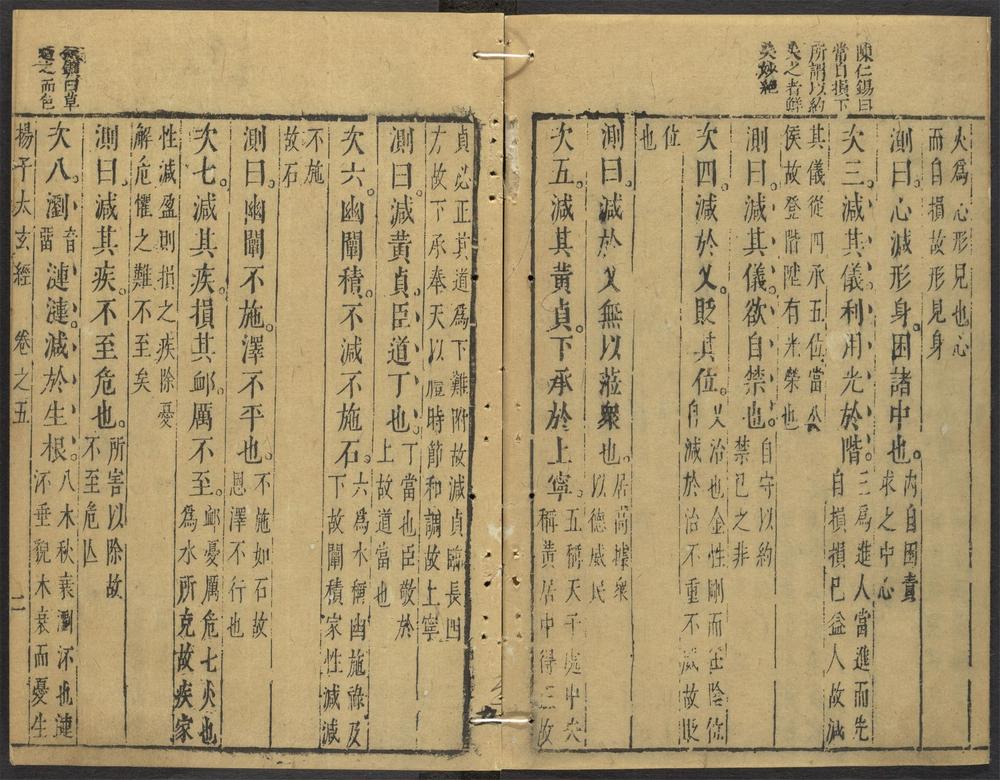 陳仁錫曰
常自損下
所謂以約
失之者鮮
矣妙絕
火為心形見也心
而自損故形見身
測曰。心減形身。困諸中也。內自困責
求之中心
次三。減其儀。利用光於階。三為進人當進而先
自損損已益人故減
其儀從四承五位當公
侯故登階陛有光榮也
測曰。減其儀。欲自禁也。自守以約
禁已之非
次四。減於乂。貶其位。乂治也金性剛而在陰位
自減於治不重不減故貶
位
也
測曰。減於乂。無以蒞眾也。居高據衆
以德威民
次五。減其黃貞。下承於上寧。五稱天子處中央
稱黃居中得正故
曰草
之而色
貞必正其道為下難附故減貞臨長四
方故下承奉天以應時節和調故上寧
測曰。減黃貞。臣道丁也。丁當也臣敬於
上故道當也
次六。幽闡積。不減不施石。六為水稱幽施祿及
下故闡積家性減減
不施
故石
測曰。幽闡不施。澤不平也。不施如石故
恩澤不行也
次七。減其疾。損其卹。厲不至。卹憂厲危七火也
為水所克故疾家
性減盈則損之疾除憂
解危懼之難不至矣
測曰。減其疾。不至危也。所害以除故
不至危凶
次八。瀏音雷漣漣。減於生根。八木秋衰瀏涕也漣
涕垂貌木衰而憂生
揚子太玄經 卷之五 二